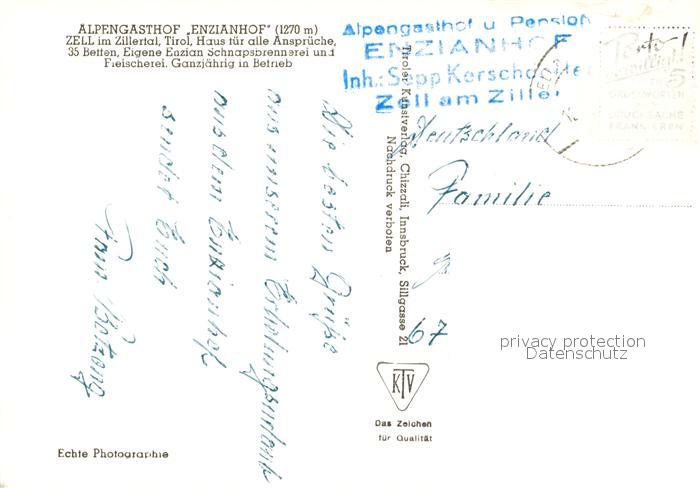 ALPENGASTHOF „ENZIANHOF" (1270 m)
ZELL im Zillertal, Tirol, Haus für alle Ansprüche,
35 Betten, Eigene Enzian Schnapsbrennerei und
Fleischerei. Ganzjährig in Betrieb
Alpengasthof u Pension
ENZIANHOF
Inh.: Sepp Kerschdorfer
Zell am Ziller
Die besten Grüße
aus unserem Erholungsurlaub
aus dem Enzianhof
sendet Euch
Fam.
Tiroler Kunstverlag, Chizzali, Innsbruck, Sillgasse 21
Nachdruck verboten
Deutschland
Familie
67
privacy protection
Datenschutz
KTV
Das Zeichen
für Qualität
Echte Photographie
Porto
5
DRUCKSACHE
FRANKIEREN